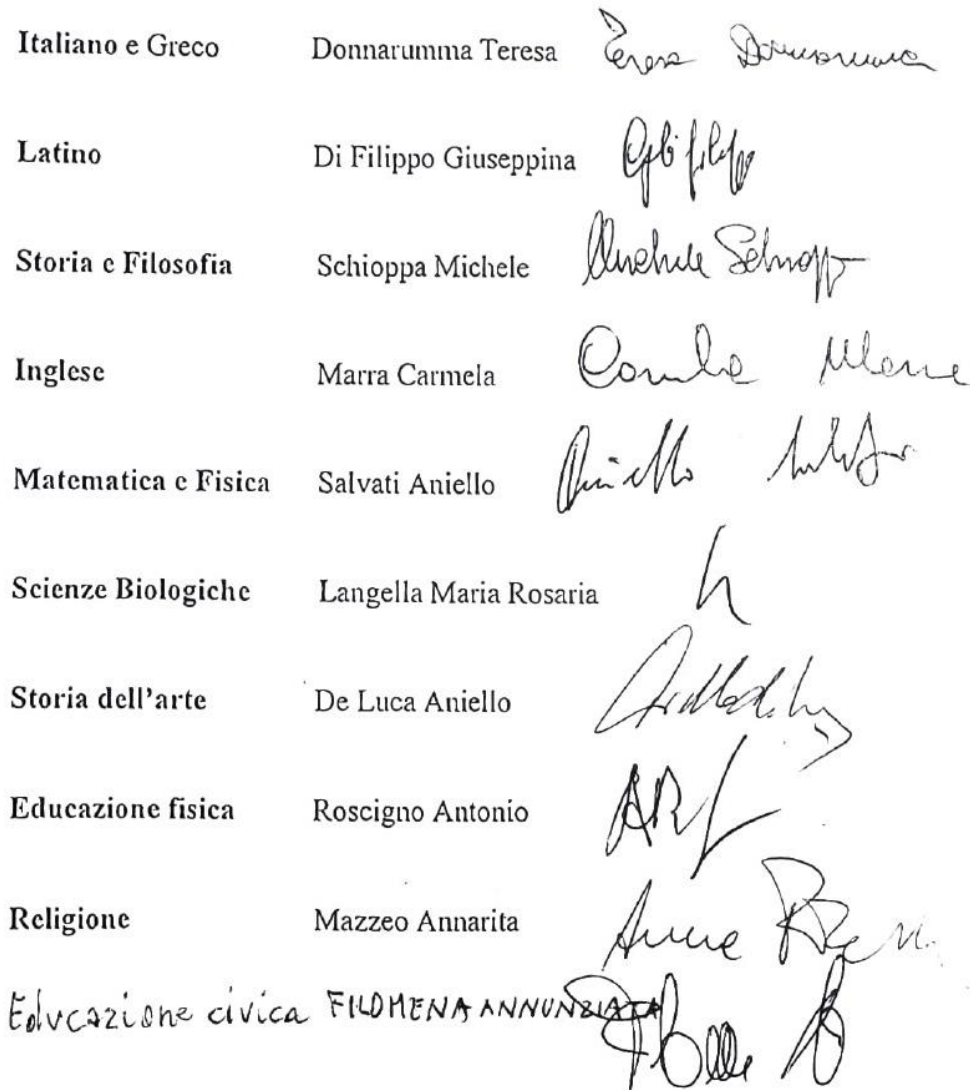 Italiano e Greco Donnarumma Teresa Teresa Donnarumma
Latino Di Filippo Giuseppina
Storia e Filosofia Schioppa Michele Michele Schioppa
Inglese Marra Carmela Carmela Marra
Matematica e Fisica Salvati Aniello Aniello
Scienze Biologiche Langella Maria Rosaria
Storia dell'arte De Luca Aniello
Educazione fisica Roscigno Antonio
Religione Mazzeo Annarita
Educazione civica FILOMENA ANNUNZIATA